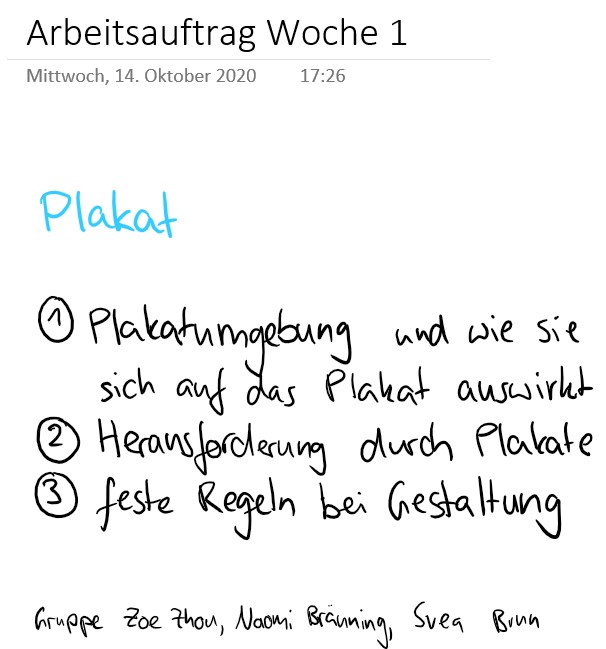 Arbeitsauftrag Woche 1
Mittwoch, 14. Oktober 2020 17:26
Plakat
① Plakatumgebung und wie sie
sich auf das Plakat auswirkt
② Herausforderung durch Plakate
③ feste Regeln bei Gestaltung
Gruppe Zoe Zhou, Naomi Bräunning, Svea Brun